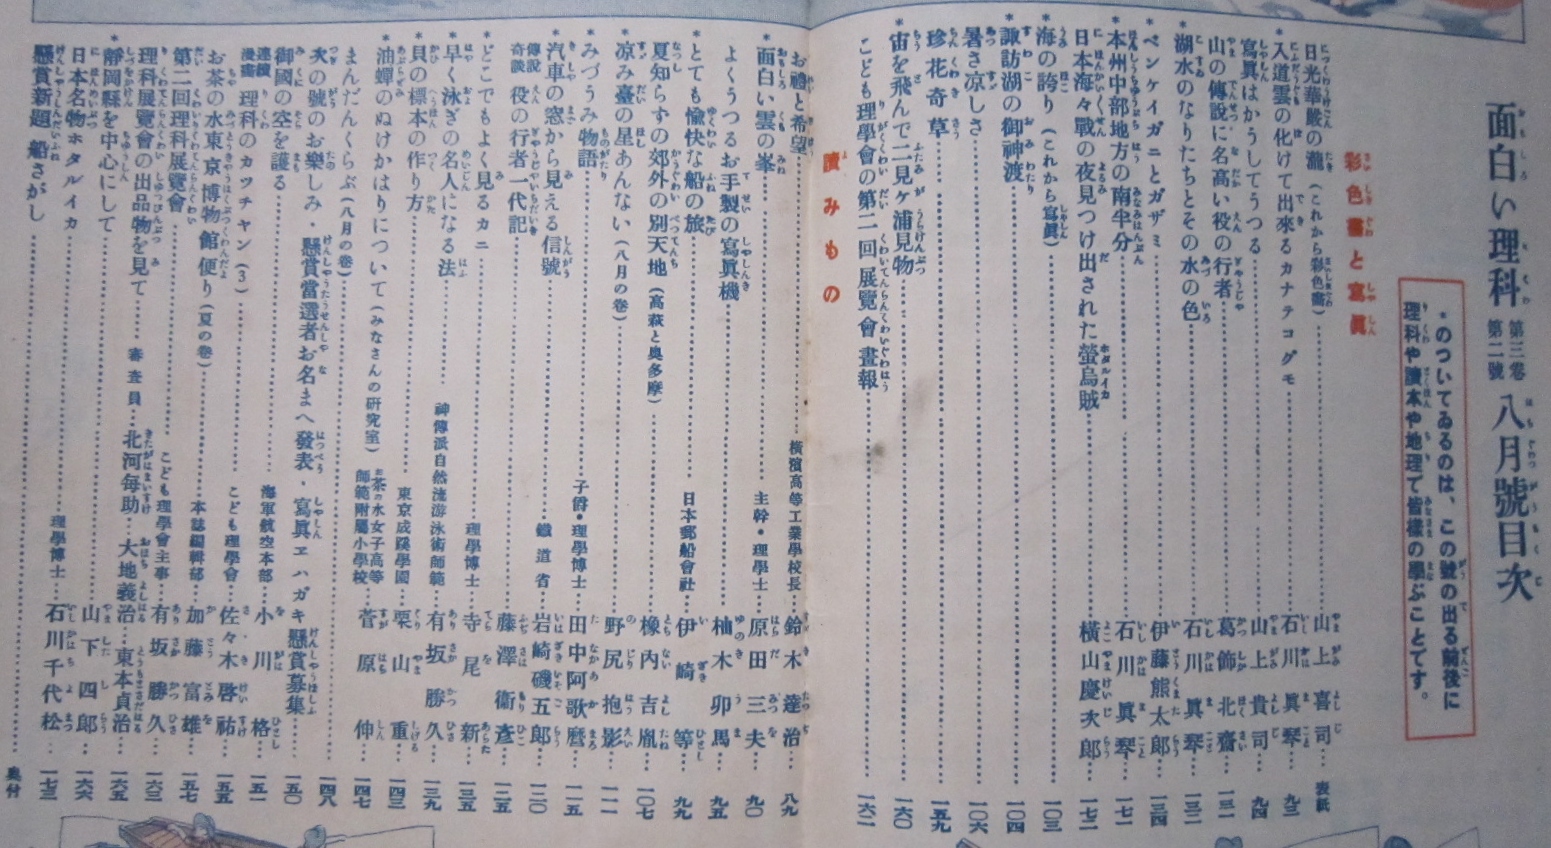 面白い理科 第三卷 第二號 八月號目次
*のついてゐるのは、この號の出る前後に
理科や讀本や地理で皆樣の學ぶことです。
彩色畫と寫眞
日光華嚴の瀧(これから彩色畫)……山上喜司…表紙
*入道雲の化けて出來るカナテコグモ……石川眞琴…九三
寫眞はかうしてうつる……山上貴司…九四
山の傳說に名高い役の行者……葛飾北齋…一三一
*湖水のなりたちとその水の色……石川眞琴…一三二
*ベンケイガニとガザミ……伊藤熊太郎…一三四
*本州中部地方の南半分……石川眞琴…一七一
日本海々戰の夜見つけ出された螢烏賊……橫山慶次郎…一七二
*海の誇り(これから寫眞)……一〇三
*諏訪湖の御神渡……一〇四
暑さ凉しさ……一〇六
珍花奇草……一五九
*宙を飛んで二見ヶ浦見物……一六〇
こども理學會の第二回展覽會畫報……一六二
讀みもの
お禮と希望……橫濱高等工業學校長…鈴木達治…八九
*面白い雲の峯……主幹・理學士…原田三夫…九〇
よくうつるお手製の寫眞機……柚木卯馬…九五
*とても愉快な船の旅……日本郵船會社…伊崎等…九九
夏知らずの郊外の別天地(高萩と奧多摩)……橡內吉胤…一〇七
*凉み臺の星あんない(八月の卷)……野尻抱影…一一一
*みづうみ物語……子爵・理學博士…田中阿歌麿…一一五
*汽車の窓から見える信號……鐵道省…岩崎磯五郎…一二〇
傳說奇談 役の行者一代記……藤澤衞彥…一二五
*どこでもよく見るカニ……理學博士…寺尾新…一三五
*早く泳ぎの名人になる法……神傳派自然流游泳術師範…有坂勝久…一三九
*貝の標本の作り方……東京成蹊學園…栗山重…一四三
*油蟬のぬけかはりについて(みなさんの硏究室)お茶の水女子高等師範附屬小學校…菅原伸…一四七
まんだんくらぶ(八月の卷)……一四八
次の號のお樂しみ・懸賞當選者お名まへ發表・寫眞エハガキ懸賞募集…一五〇
御國の空を護る……海軍航空本部…小川格…一五一
連續漫畫 理科のカッチャン(3)……こども理學會…佐々木啓祐…一五五
お茶の水東京博物館便り(夏の卷)……本誌編輯部…加藤富雄…一五七
第二回理科展覽會……こども理學會主事…有坂勝久…一六三
理科展覽會の出品物を見て……審査員…北河每助・大地義治・東本貞治…一六五
*靜岡縣を中心にして……山下四郎…一六六
日本名物ホタルイカ……理學博士…石川千代松…一七三
懸賞新題 船さがし……奧付